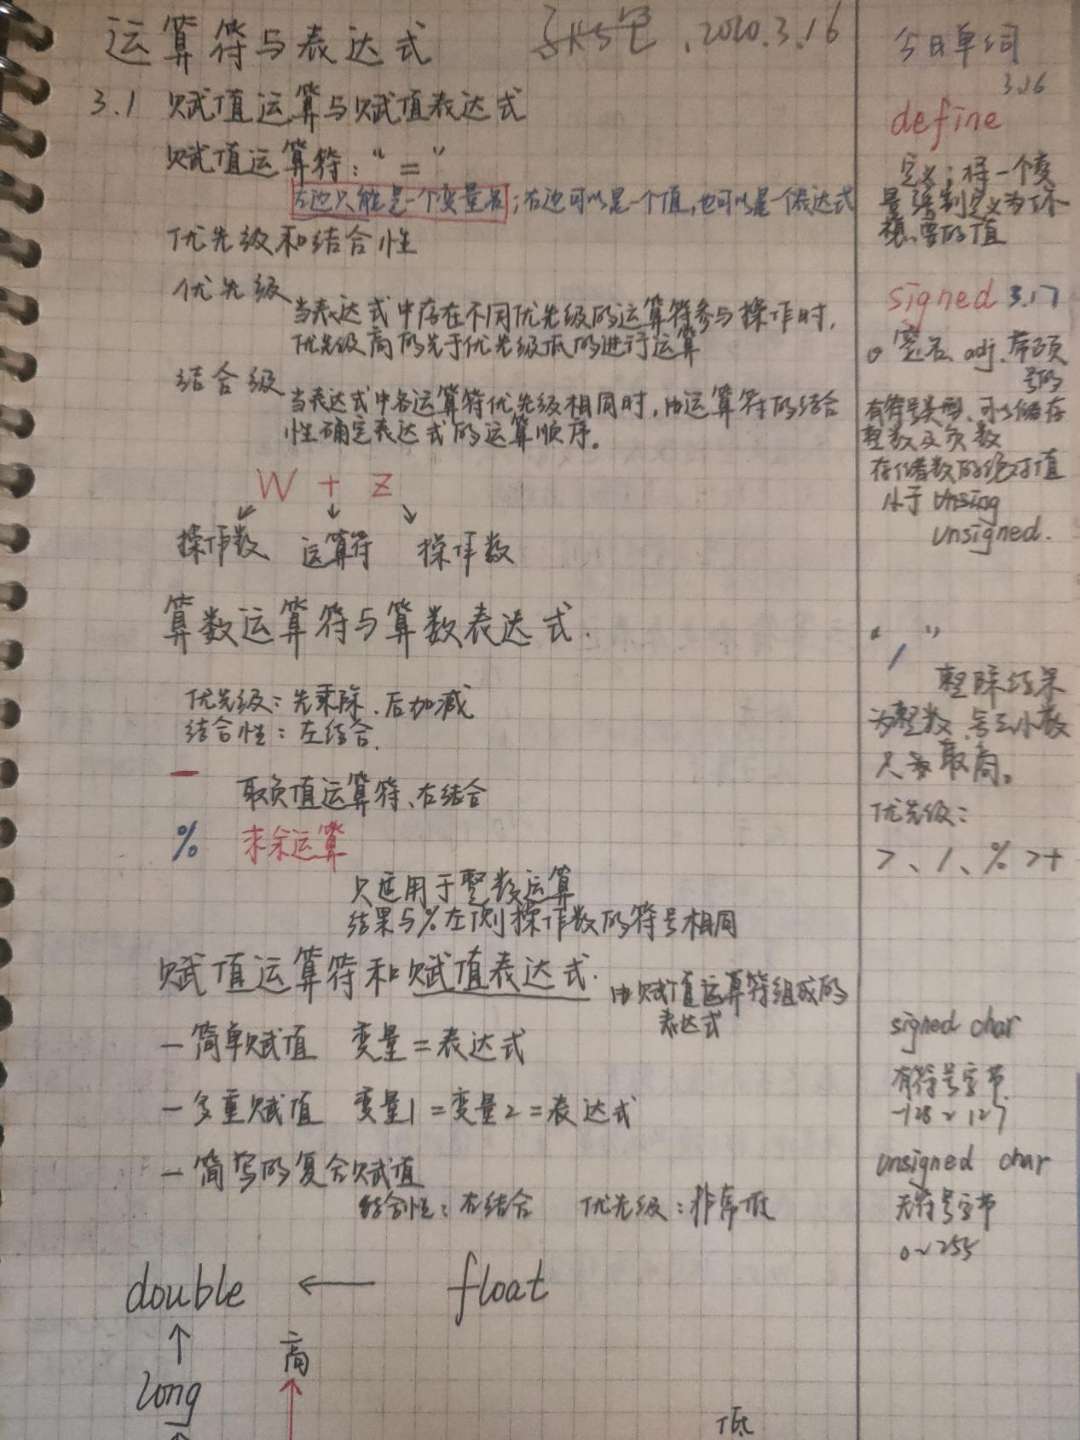 运算符与表达式
2020.3.16
3.1 赋值运算与赋值表达式
赋值运算符：“=”
左边只能是一个变量名；右边可以是一个值，也可以是个表达式
优先级和结合性
优先级
当表达式中存在不同优先级的运算符参与操作时，
优先级高的先于优先级低的进行运算
结合级
当表达式中各运算符优先级相同时，由运算符的结合
性确定表达式的运算顺序。
W + Z
操作数 运算符 操作数
算数运算符与算数表达式.
优先级：先乘除、后加减
结合性：左结合.
—
取负值运算符、右结合
% 求余运算
只适用于整数运算
结果与%左侧操作数的符号相同
赋值运算符和赋值表达式. 由赋值运算符组成的
表达式
—简单赋值 变量=表达式
—多重赋值 变量1=变量2=表达式
—简写的复合赋值
结合性：右结合 优先级：非常低
double ← float
↑
高
long
低
今日单词
3.16
define
定义；将一个变
量强制定义为你
想要的值
signed 3.17
签名、adj.带正负
号的
有符号类型、可以储存
整数及负数
存储数的绝对值
小于 unsing
unsigned.
“/”
整除结果
为整数，舍去小数
只取商。
优先级：
>、/、% >+
signed char
有符号字节
-128~127
unsigned char
无符号字节
0~255